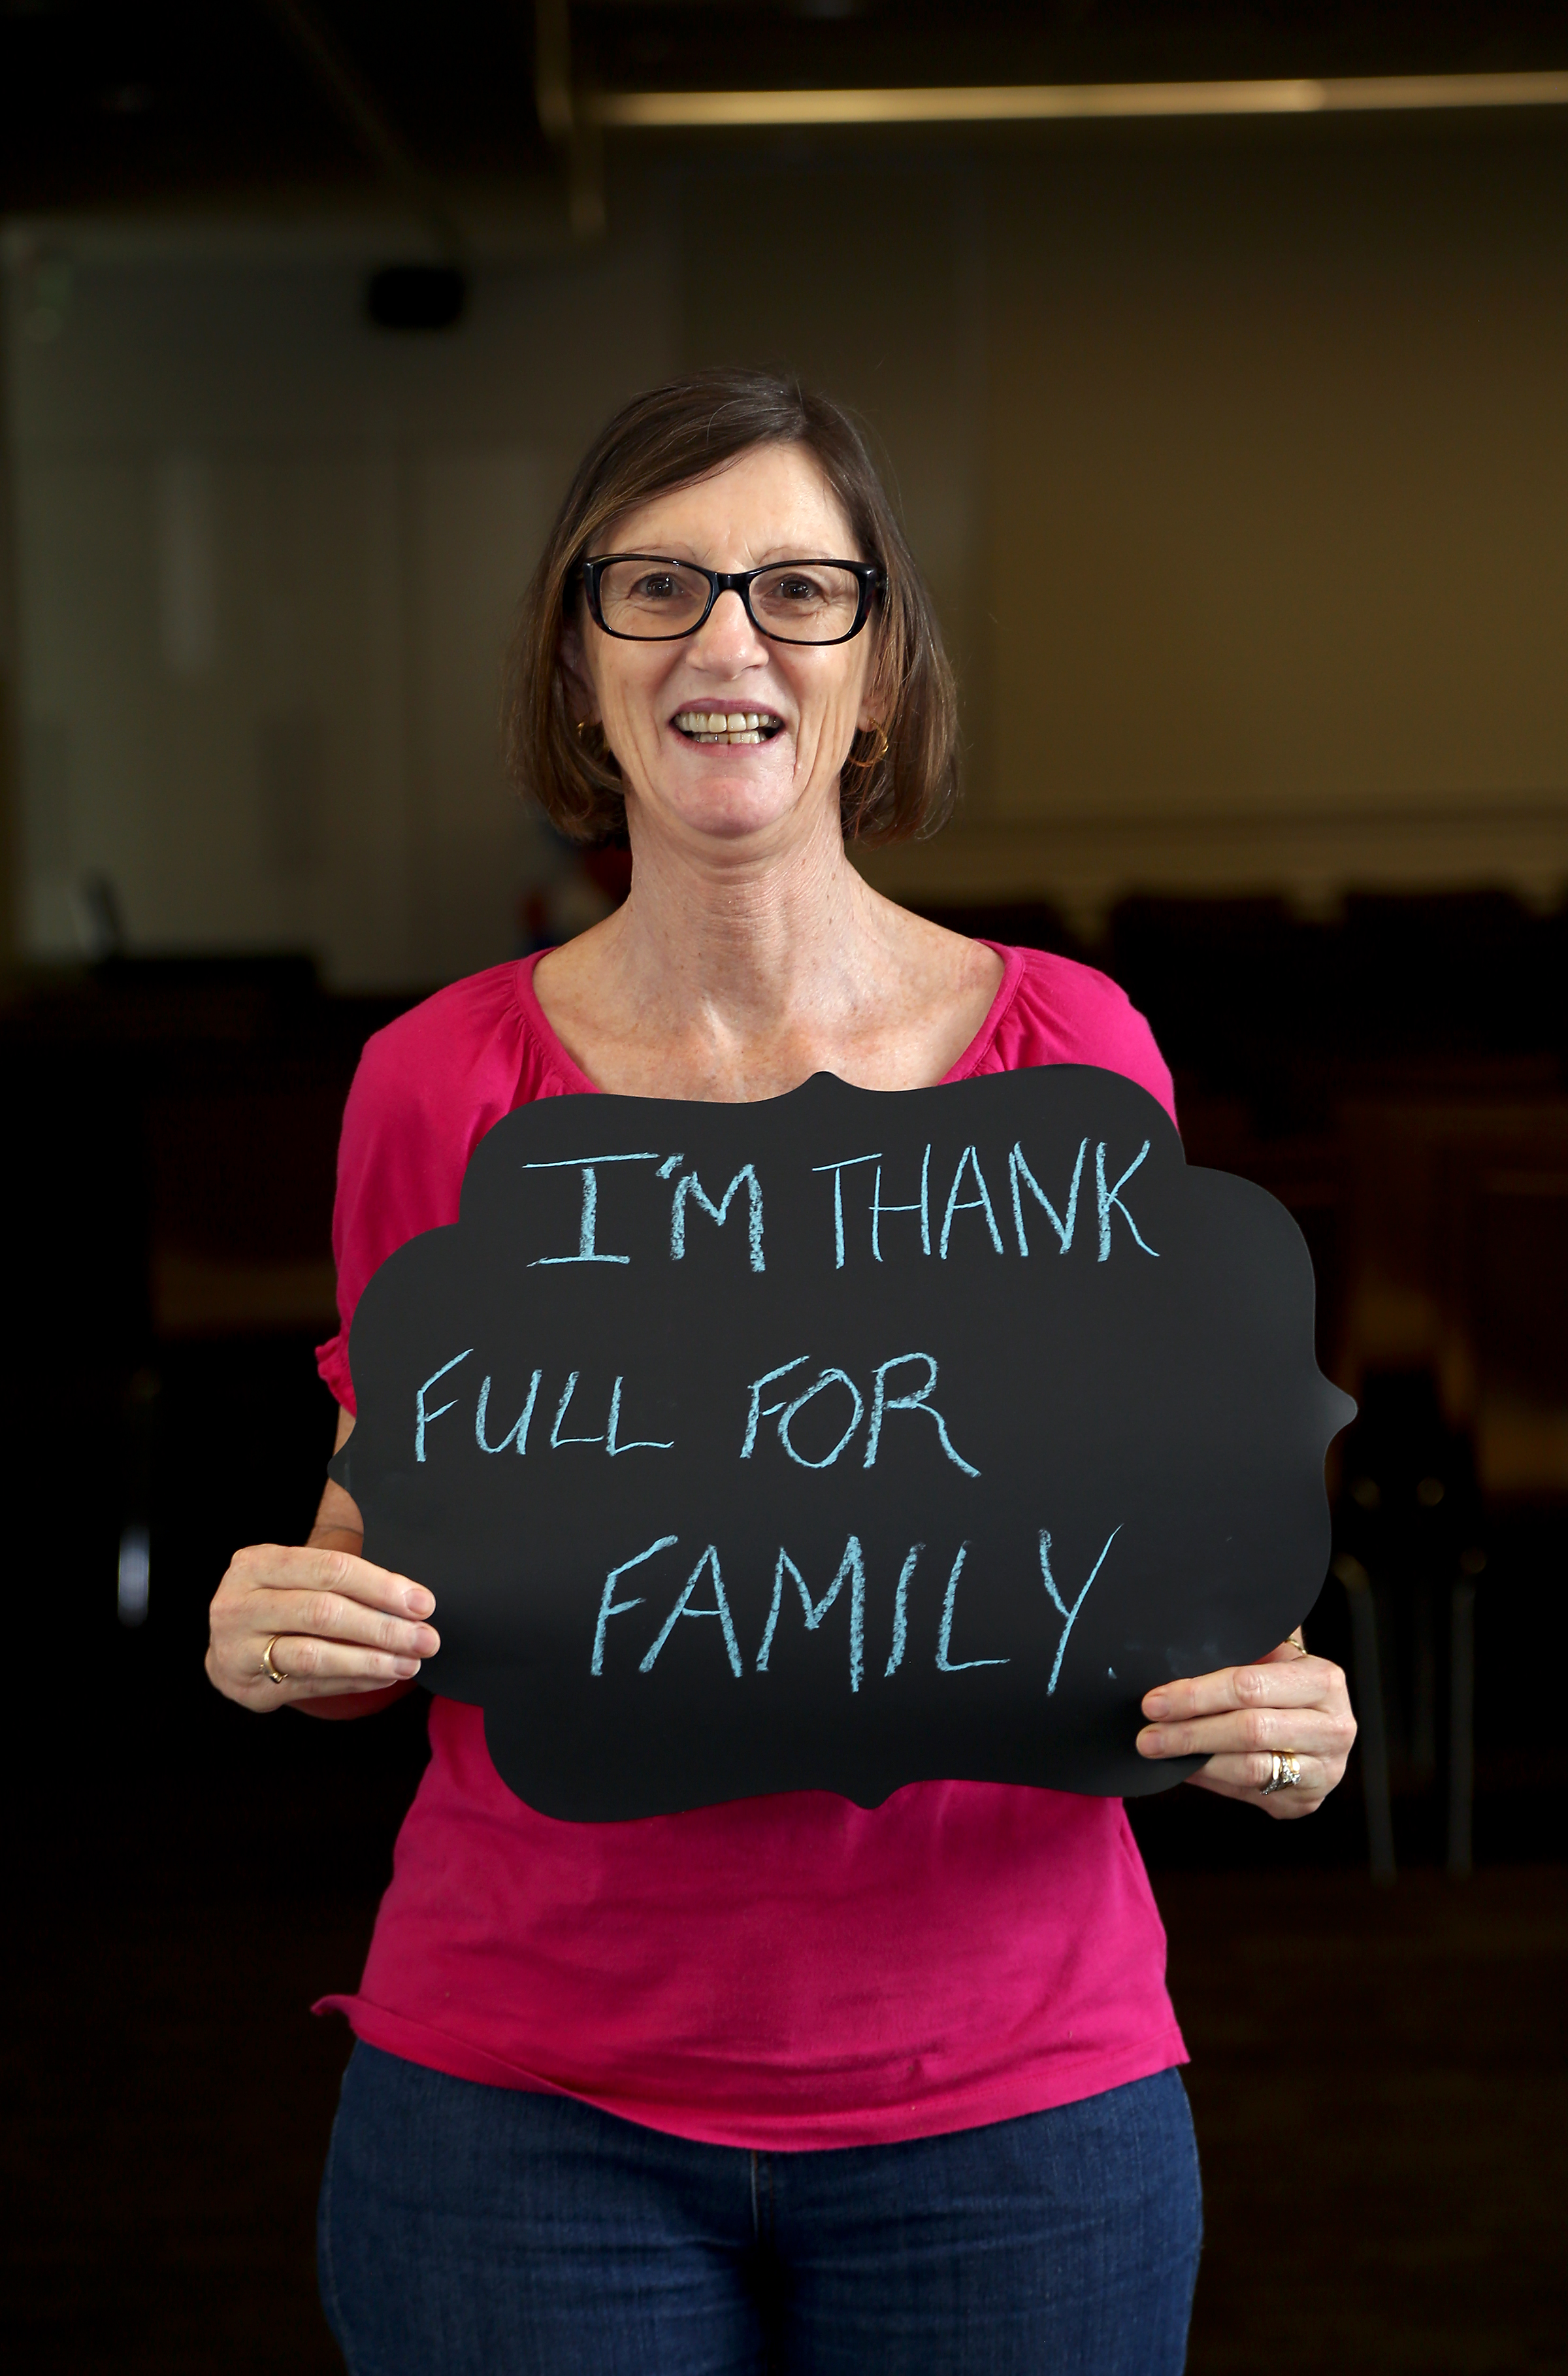 I'M THANK
FULL FOR
FAMILY.